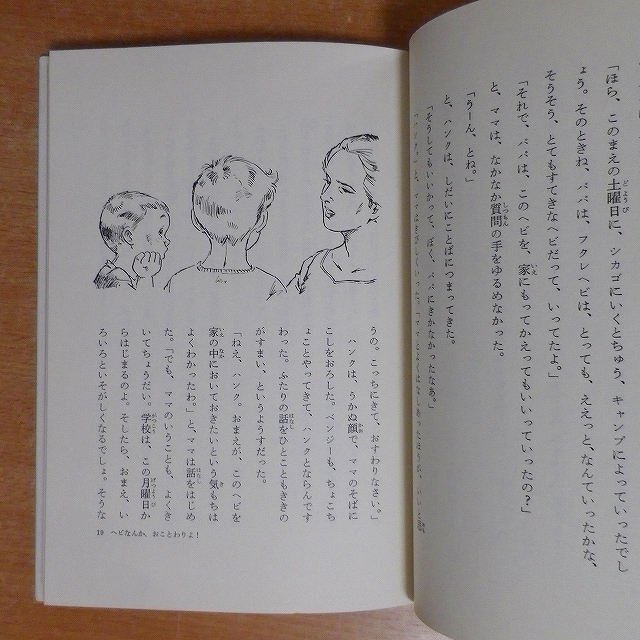 「ほら、このまえの土曜日に、シカゴにいくとちゅう、キャンプにいったでし
ょう。そのときね、パパは、フクレヘビは、とっても、ええっと、なんていったかな、
そうそう、とてもすてきなヘビだって、いってたよ。」
「それで、パパは、このヘビを、家にもってかえってもいいっていったの？」
と、ママは、なかなか質問の手をゆるめなかった。
「うーん、とね。」
と、ハンクは、しだいにことばにつまってきた。
「そうしてもいいかって、ぼく、パパにきかなかったなあ。」
うの。こっちにきて、おすわりなさい。」
ハンクは、うかぬ顔で、ママのそばに
こしをおろした。ベンジーも、ちょこち
ょことやってきて、ハンクとならんです
わった。ふたりの話をひとこともききの
がすまい、というようすだった。
「ねえ、ハンク。おまえが、このヘビを
家の中においておきたいという気もちは
よくわかったわ。」と、ママは話をはじめ
た。「でも、ママのいうことも、よくき
いてちょうだい。学校は、この月曜日か
らはじまるのよ。そしたら、おまえ、い
ろいろといそがしくなるでしょ。そうな
19 ヘビなんか、おことわりよ！